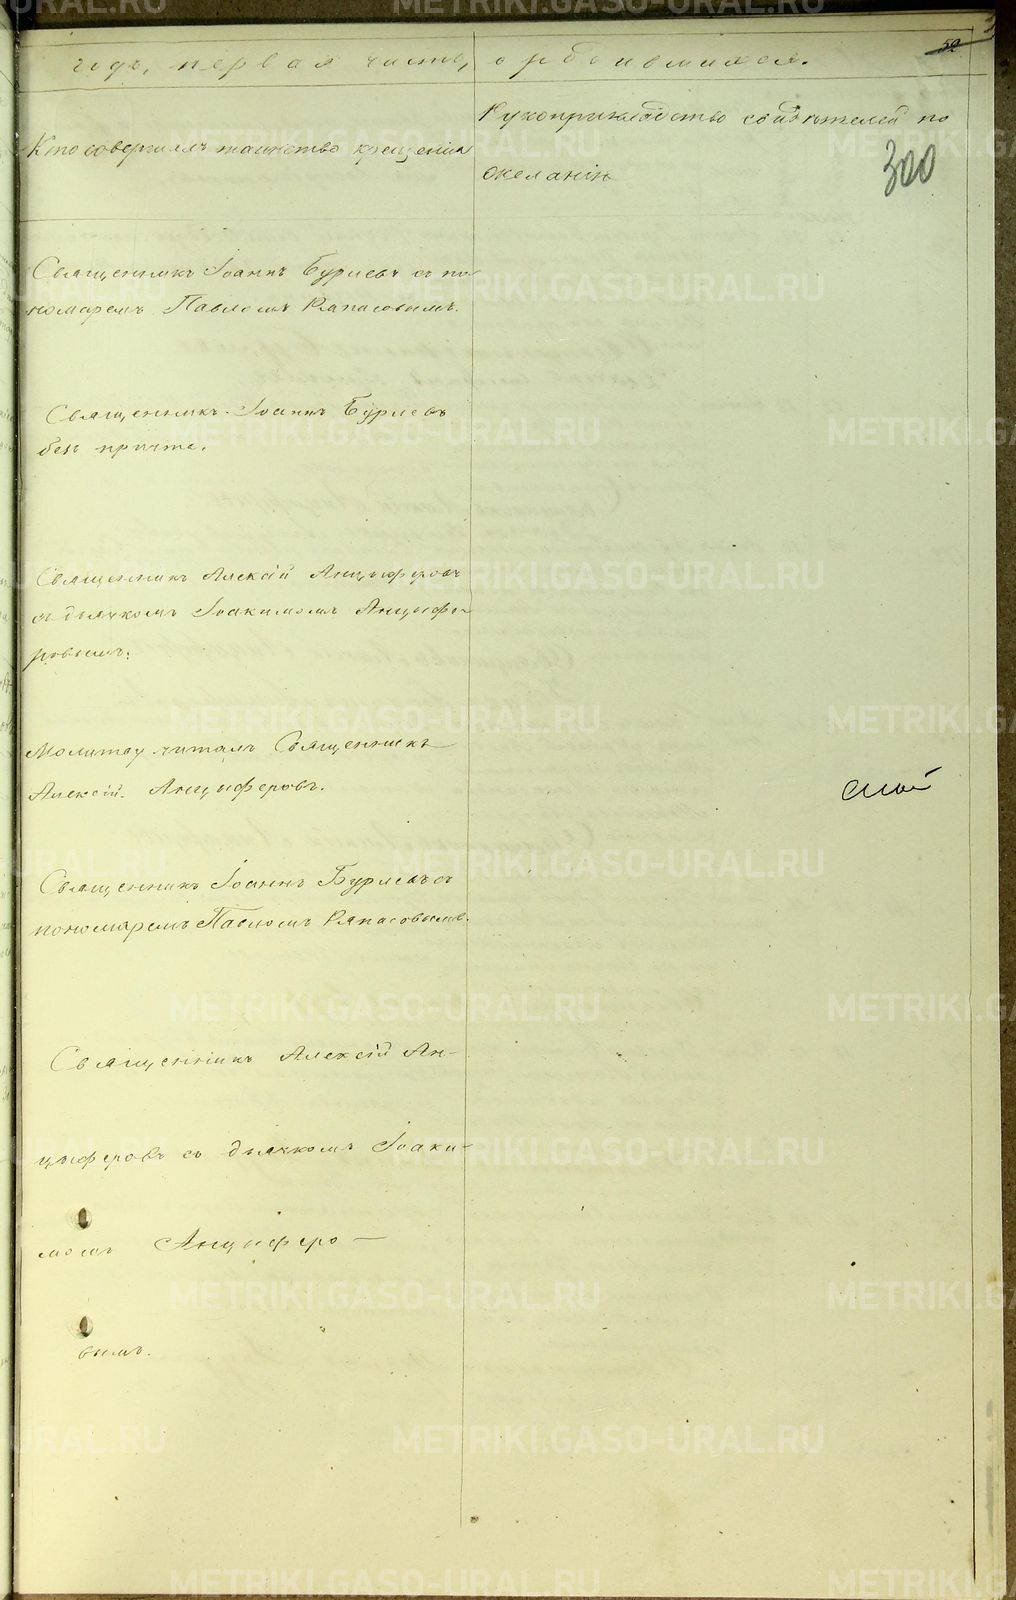 годъ, первая часть, о родившихся.
52
Кто совершилъ таинство крещенія
Рукоприкладство свидѣтелей по
желанію
300
Священникъ Іоаннъ Бурлевъ съ по-
номаремъ Павломъ Ряпасовымъ.
Священникъ Іоаннъ Бурлевъ
безъ причта.
Священникъ Алексій Анцыферовъ
съ дьячкомъ Іоакимомъ Анцыфе-
ровымъ.
Молитву читалъ Священникъ
Алексій Анцыферовъ.
Священникъ Іоаннъ Бурлевъ съ
пономаремъ Павломъ Ряпасовымъ.
Священникъ Алексій Ан-
цыферовъ съ дьячкомъ Іоаки-
момъ Анцыферо-
вымъ.
METRIKI.GASO-URAL.RU